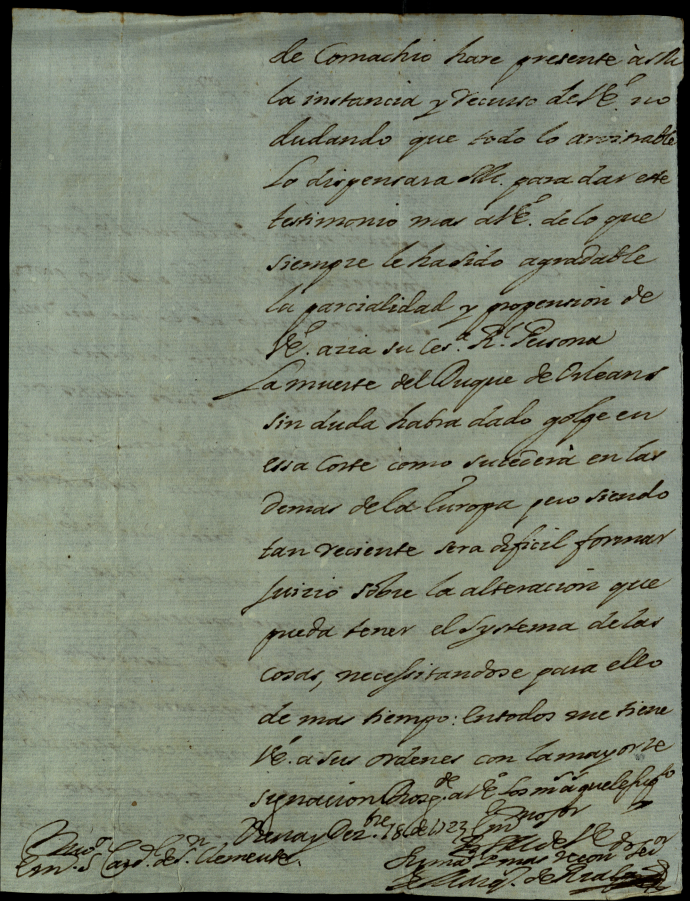 de Comachio hare presente à SM
la instancia y recurso de VE.ª no
dudando que todo lo arvitrable
lo dispensara SM. para dar este
testimonio mas a VE.ª de lo que
siempre le ha sido agradable
la parcialidad y propension de
VE.ª azia su Ces.ª R.l Persona
La muerte del Duque de Orleans
sin duda habra dado golpe en
essa Corte como sucederà en las
demas de la Europa pero siendo
tan reciente sera dificil formar
juizio sobre la alteracion que
pueda tener el systema de las
cosas, necessitandose para ello
de mas tiempo: En todos me tiene
VE.ª a sus ordenes con la mayor re
signacion Dios g.de a VE.ª los m.s a.s que le sup.co
Viena y Dez.bre 18 de 1723
Em.mo S.or
Em.º S. Card.l de S.n Clemente.
de VE.
su mas
Marq.s de Rialp